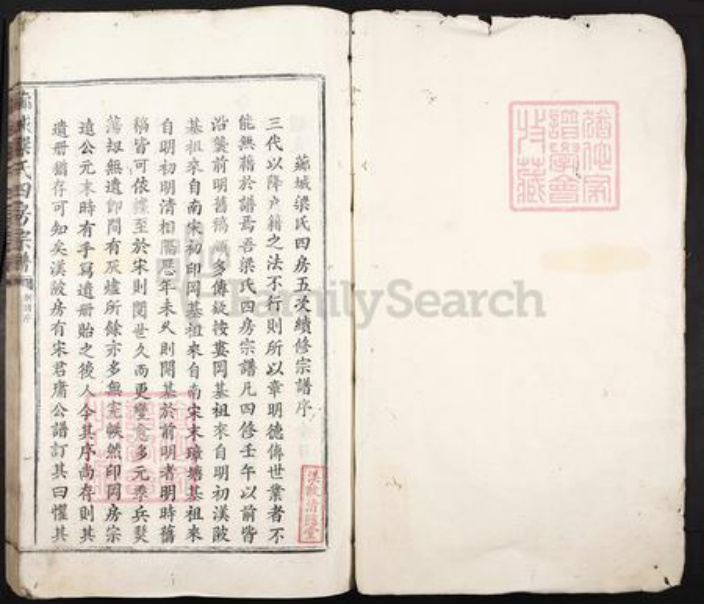 蕭城梁氏四房五次續修宗譜序
三代以降户籍之法不行則所以章明德傳世業者不
能無藉於譜焉吾梁氏四房宗譜凡四修壬午以前皆
沿襲前明舊稿 多傳疑按婁岡基祖來自明初漢陂
基祖來自南宋初印岡基祖來自南宋末璋塘基祖來
自明初明清相 年未久則開基於前明者明時舊
稿皆可依 至於宋則閱世久而更變愈多元季兵燹
蕩劫無遺卽間有灰爐所餘亦多無完帙然印岡房宗
遠公元末時有手寫遺册貽之後人今其序尚存則其
遺册猶存可知矣漢陂房有宋君庸公譜訂其曰懼其
梁氏四房宗譜
譜學會
收藏
FamilySearch